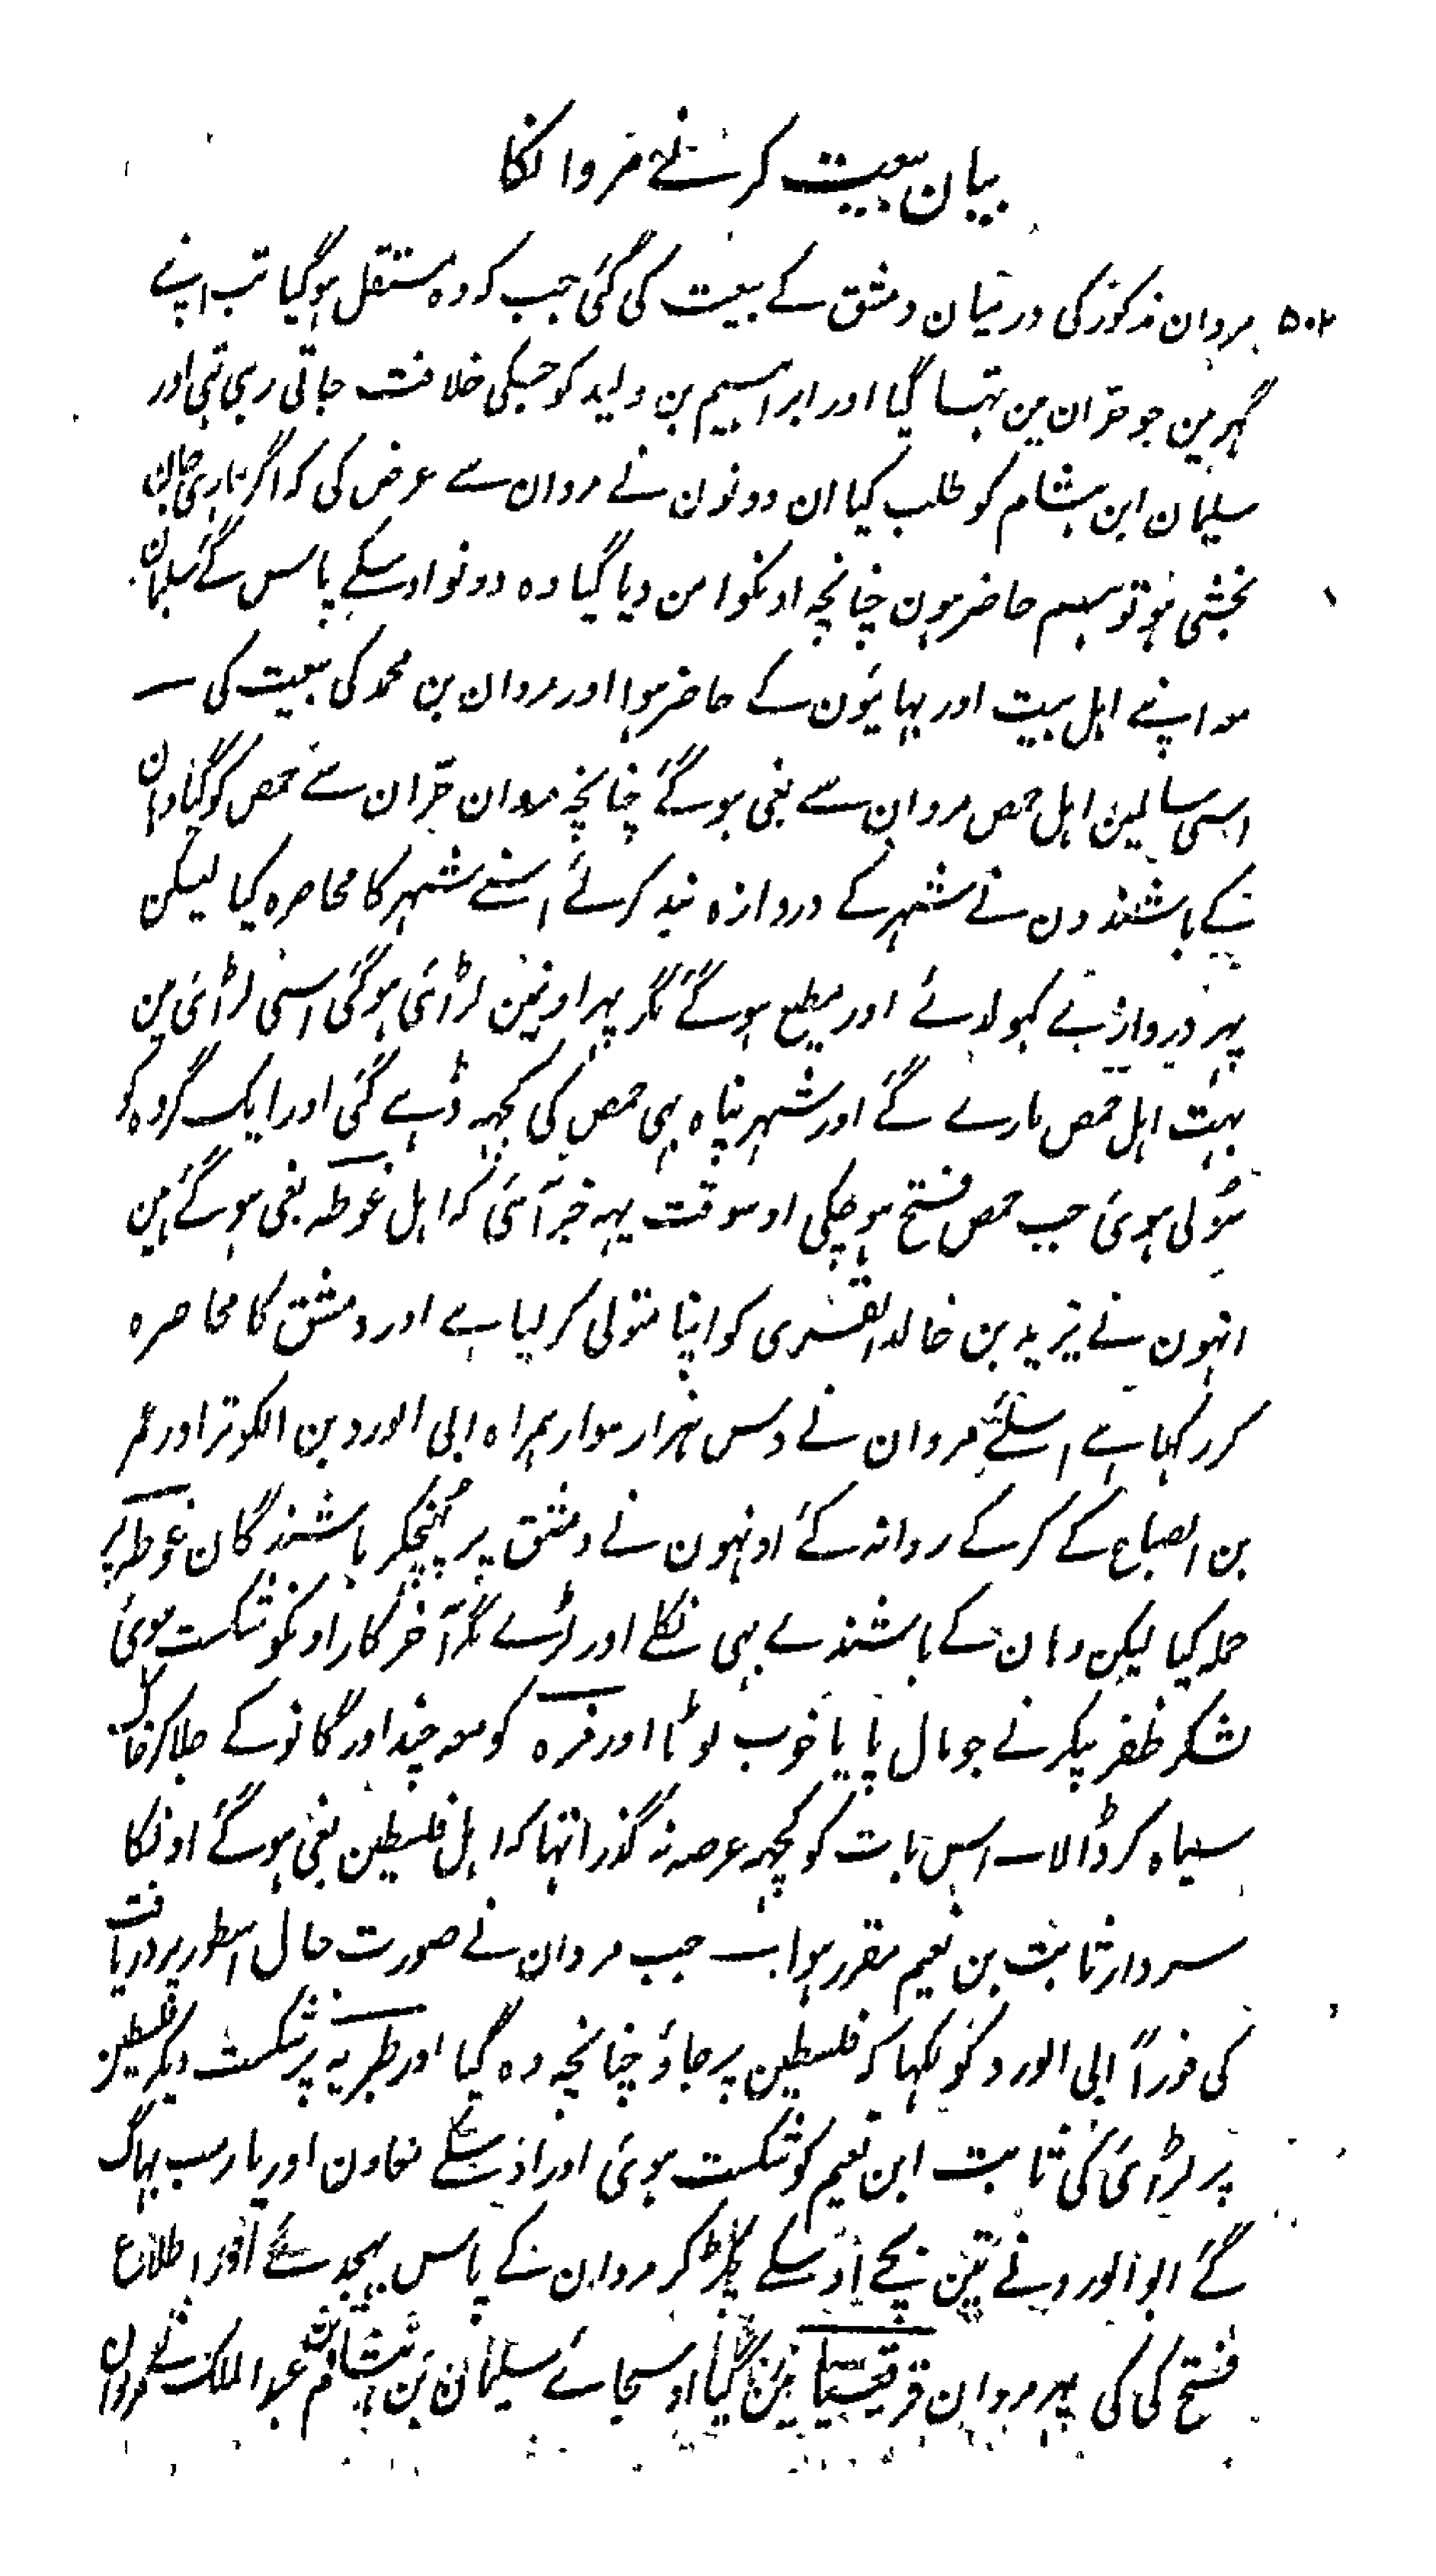 بیان بیعت کرنے مروانکا
۵۰۲ مروان مذکور کی درمیان دمشق کے بیعت کی گئی جب کہ وہ مستقل ہوگیا تب اپنے
گہر مین جو حرّان مین تہا گیا اور ابراہیم بن ولید کو جسکی خلافت جاتی رہی تہی اور
سلیمان ابن ہشام کو طلب کیا ان دونون نے مروان سے عرض کی کہ اگر ہماری جان
بخشی ہو تو ہم حاضر ہون چنانچہ اونکو امن دیا گیا وہ دونو اوسکے پاس گئے سلیمان
معہ اپنے اہل بیت اور بہائیون کے حاضر ہوا اور مروان بن محمد کی بیعت کی ــ
اسی سالمین اہل حمص مروان سے بغی ہوگئے چنانچہ مروان حرّان سے حمص کو گیا وہان
کے باشندون نے شہر کے دروازہ بند کرلئے اسنے شہر کا محاصرہ کیا لیکن
پہر دروازے کہولدئے اور مطیع ہوگئے مگر پہر اونمین لڑائی ہوگئی اسی لڑائی مین
بہت اہل حمص مارے گئے اور شہر پناہ بہی حمص کی کچہہ ڈہے گئی اور ایک گروہ کو
سولی ہوئی جب حمص فتح ہوچکی اوسوقت یہہ خبر آئی کہ اہل غوطہ بغی ہوگئے ہین
انہون نے یزید بن خالد القسری کو اپنا متولی کرلیا ہے اور دمشق کا محاصرہ
کررکہا ہے اسلئے مروان نے دس ہزار سوار ہمراہ ابی الورد بن الکوثر اور عمر
بن الصباح کے کرکے روانہ کئے اونہون نے دمشق پر پُنچکر باشندگان غوطہ پر
حملہ کیا لیکن وہان کے باشندے بہی نکلے اور لڑے مگر آخرکار اونکو شکست ہوئی
لشکر ظفر پیکر نے جو مال پایا خوب لوٹا اور مزہ کو معہ چند اور گانو کے جلا کر خاک
سیاہ کرڈالا ــ اس بات کو کچہہ عرصہ نہ گذرا تہا کہ اہل فلسطین بغی ہوگئے اونکا
سردار ثابت بن نعیم مقرر ہوا ــ جب مروان نے صورت حال اسطور پر دریافت
کی فوراً ابی الورد کو لکہا کہ فلسطین پر جاؤ چنانچہ وہ گیا اور طبریہ پر شکست دیکر فلسطین
پر لڑائی کی ثابت ابن نعیم کو شکست ہوئی اور اوسکے معاون اور یار سب بہاگ
گئے ابو الورد نے تین بچے اوسکے پکڑ کر مروان کے پاس بہیجدئے اور اطلاع
فتح کی کی پہر مروان قرقیسیا مین گیا اوسجائے سلیمان بن ہشام بن عبد الملک نے مروان